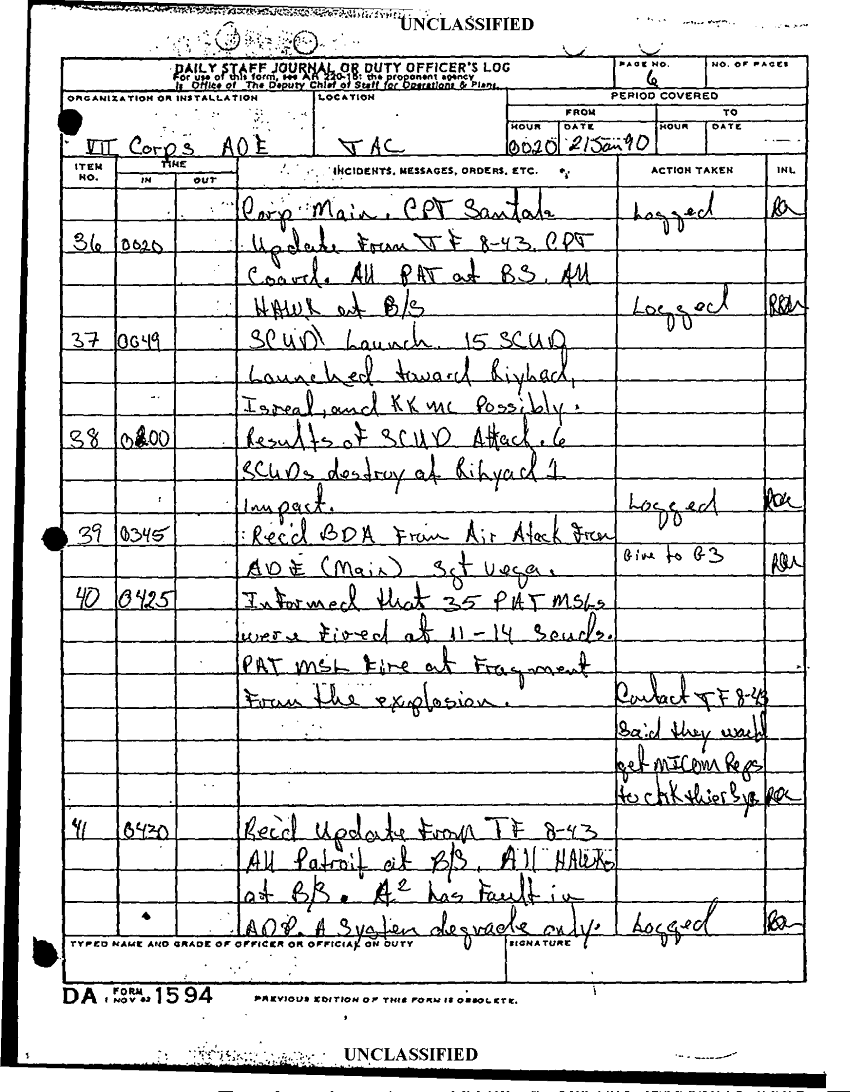 UNCLASSIFIED
DAILY STAFF JOURNAL OR DUTY OFFICER'S LOG
For use of this form, see AR 220-15: the proponent agency
is Office of The Deputy Chief of Staff for Operations & Plans.
PAGE NO.
6
NO. OF PAGES
ORGANIZATION OR INSTALLATION
VII Corps ADE
LOCATION
TAC
PERIOD COVERED
FROM
TO
HOUR
DATE
HOUR
DATE
0020
21 Jan 90
ITEM NO.
TIME
IN
OUT
INCIDENTS, MESSAGES, ORDERS, ETC.
ACTION TAKEN
INL
Corp Main. CPT Logged
36 0020 Update From TF 8-43. CPT
All PAT at BS. All
HAWK at B/S Logged
37 0049 SCUD Launch 15 SCUD
Launched toward Riyhad,
Isreal, and KKMC Possibly.
38 0200 Results of SCUD Attack. 6
SCUDs destroy at Rihyad 1
Impact. Logged
39 0345 Rec'd BDA From Air Atack From
ADE (Main) Sgt Vega. Give to G3
40 0425 Informed that 35 PAT MSLs
were Fired at 11-14 Scuds.
PAT MSL Fire at Fragment
From the explosion. Contact TF 8-43
Said they would
get MICOM Reps
to chk thier Sys
41 0430 Rec'd Update From TF 8-43
All Patroit at B/S. All HAWKs
at B/S. A² has Fault in
A System degrade only. Logged
TYPED NAME AND GRADE OF OFFICER OR OFFICIAL ON DUTY
SIGNATURE
DA FORM 1 NOV 62 1594
PREVIOUS EDITION OF THIS FORM IS OBSOLETE.
UNCLASSIFIED